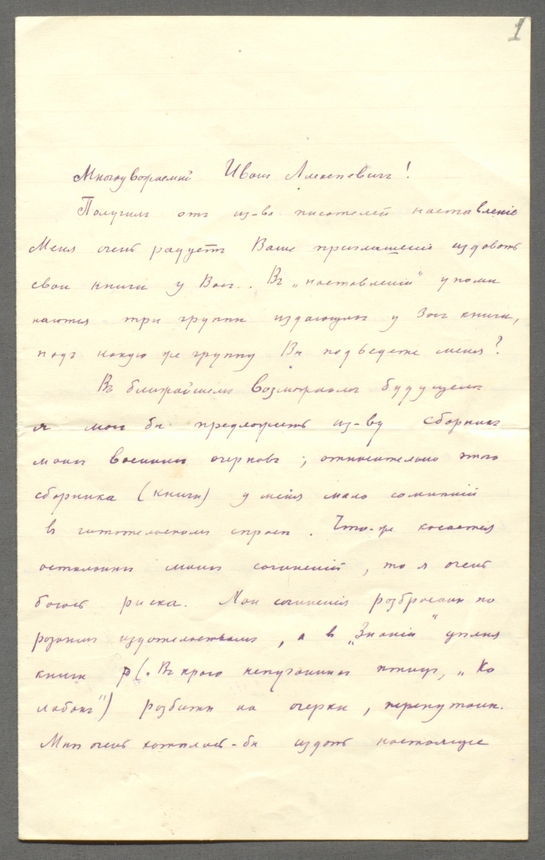 1
Многоуважаемый Иван Алексеевич!
Получил отъ из-ва писателей наставленіе
Меня очень радуетъ Ваше приглашеніе издавать
свои книги у Вас.. Въ „наставленіи" упоми
наются три группы издающихъ у Вас книги,
подъ какую же группу Вы подведете меня?
Въ ближайшемъ возможномъ будущемъ
я мог бы предложить из-ву сборникъ
моихъ военныхъ очерковъ; относительно этого
сборника (книги) у меня мало сомнѣній
въ читательскомъ спросѣ. Что-же касается
остальныхъ моихъ сочиненій, то я очень
боюсь риска. Мои сочиненія разбросаны по
разнымъ издательствамъ, а в „Знаніи" цѣлыя
книги (. Въ краю непуганныхъ птицъ, „Ко
лобокъ") разбиты на очерки, перепутаны.
Мнѣ очень хотѣлось-бы издать настоящее